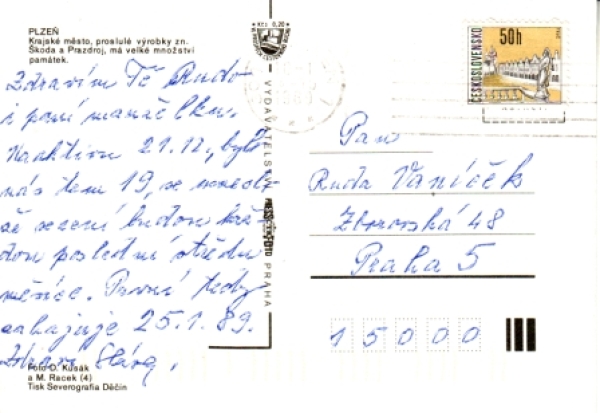 PLZEŇ
Krajské město, proslulé výrobky zn.
Škoda a Prazdroj, má velké množství
památek.
Zdravím Tě Rudo
i paní manželku.
Na aktivu 21.12., bylo
nás tam 19, se
sezení budou
poslední středu
měsíce. První tedy
zahajuje 25.1.89.
Zdraví
Foto O. Kusák
a M. Racek (4)
Tisk Severografia Děčín
Kčs 0,20
VYDAVATELSTVÍ
PRESSFOTO
PRAHA
50h
ČESKOSLOVENSKO
Pan
Ruda Vaníček
Zborovská 48
Praha 5
15000